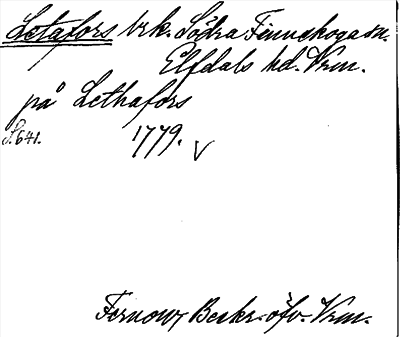 Letafors brk. Södra Finnskoga sn.
Elfdals hd. Vrm.
på Lethafors
S. 641. 1779. V
Fernow, Beskr. öfv. Vrm.